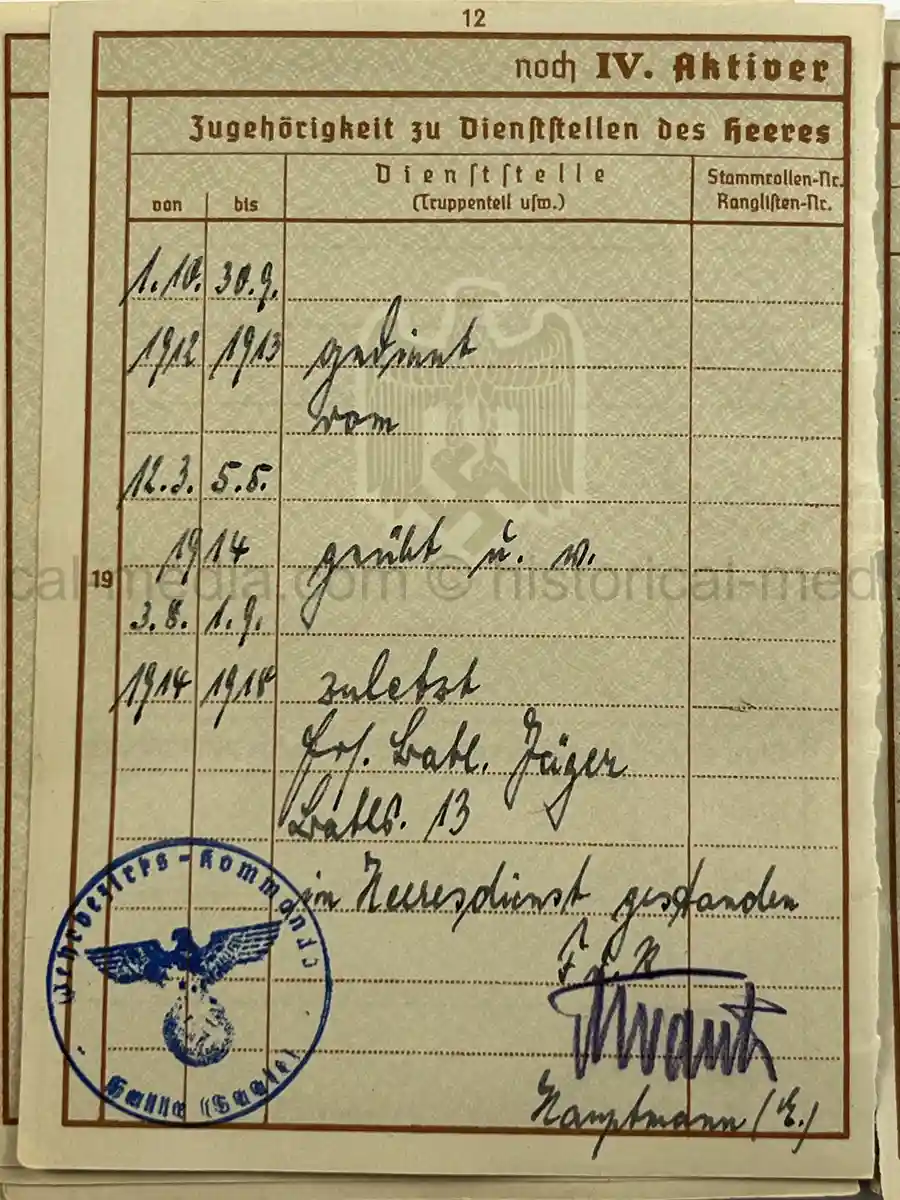 12
noch IV. Aktiver
Zugehörigkeit zu Dienststellen des Heeres
von bis Dienststelle (Truppenteil usw.) Stammrollen-Nr. Ranglisten-Nr.
1.10. 30.9.
1912 1913 gedient
vom
12.3. 5.5.
1914 geübt u. v.
19
cal-media.com © historical-med
3.8. 1.9.
1914 1918 zuletzt
Ers. Batl. Jäger
Batls. 13
im Heeresdienst gestanden
F. d. R.
Hauptmann (E.)
Wehrbezirks-Kommando
Halle (Saale)